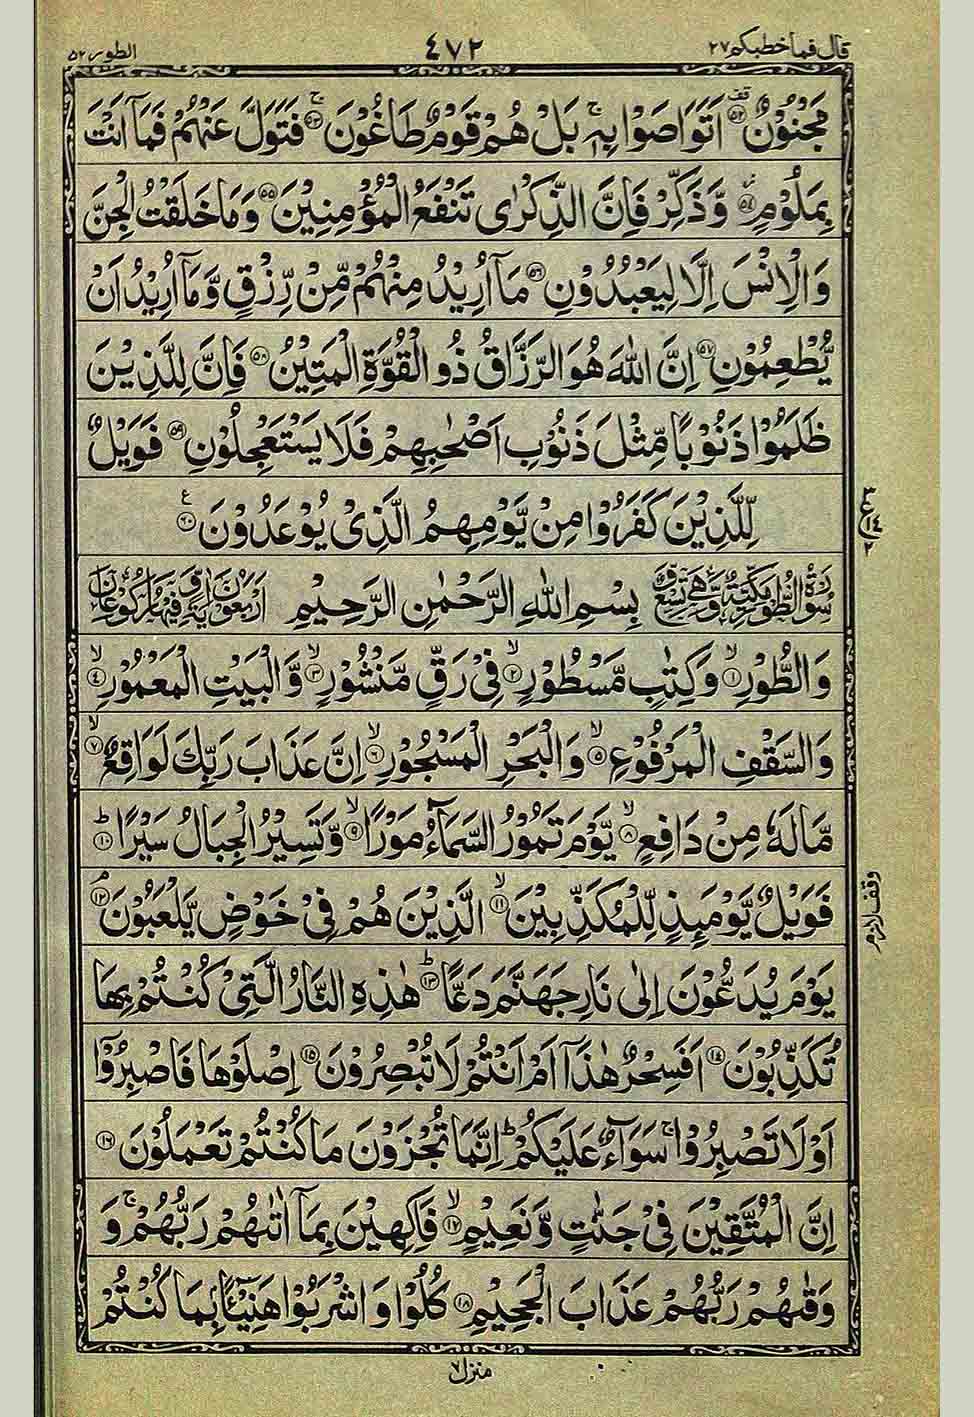 قال فماخطبکم ٢٧ ٤٧٢ الطور ٥٢
مَجْنُوْنٌ ﴿٥٢﴾ اَتَوَاصَوْا بِهٖ ۚ بَلْ هُمْ قَوْمٌ طَاغُوْنَ ﴿٥٣﴾ فَتَوَلَّ عَنْهُمْ فَمَاۤ اَنْتَ
بِمَلُوْمٍ ﴿٥٤﴾ وَّذَكِّرْ فَاِنَّ الذِّكْرٰى تَنْفَعُ الْمُؤْمِنِيْنَ ﴿٥٥﴾ وَمَا خَلَقْتُ الْجِنَّ
وَالْاِنْسَ اِلَّا لِيَعْبُدُوْنِ ﴿٥٦﴾ مَاۤ اُرِيْدُ مِنْهُمْ مِّنْ رِّزْقٍ وَّمَاۤ اُرِيْدُ اَنْ
يُّطْعِمُوْنِ ﴿٥٧﴾ اِنَّ اللّٰهَ هُوَ الرَّزَّاقُ ذُو الْقُوَّةِ الْمَتِيْنُ ﴿٥٨﴾ فَاِنَّ لِلَّذِيْنَ
ظَلَمُوْا ذَنُوْبًا مِّثْلَ ذَنُوْبِ اَصْحٰبِهِمْ فَلَا يَسْتَعْجِلُوْنِ ﴿٥٩﴾ فَوَيْلٌ
لِّلَّذِيْنَ كَفَرُوْا مِنْ يَّوْمِهِمُ الَّذِيْ يُوْعَدُوْنَ ﴿٦٠﴾ ع
٣ ع ١٤ ٢
سُوْرَةُ الطُّوْرِ مَكِّيَّةٌ وَّهِيَ تِسْعٌ وَّ بِسْمِ اللّٰهِ الرَّحْمٰنِ الرَّحِيْمِ اَرْبَعُوْنَ اٰيَةً وَّفِيْهَا رُكُوْعَانِ
وَالطُّوْرِ ۙ﴿١﴾ وَكِتٰبٍ مَّسْطُوْرٍ ۙ﴿٢﴾ فِيْ رَقٍّ مَّنْشُوْرٍ ۙ﴿٣﴾ وَّالْبَيْتِ الْمَعْمُوْرِ ۙ﴿٤﴾
وَالسَّقْفِ الْمَرْفُوْعِ ۙ﴿٥﴾ وَالْبَحْرِ الْمَسْجُوْرِ ۙ﴿٦﴾ اِنَّ عَذَابَ رَبِّكَ لَوَاقِعٌ ۙ﴿٧﴾
مَّا لَهٗ مِنْ دَافِعٍ ۙ﴿٨﴾ يَّوْمَ تَمُوْرُ السَّمَآءُ مَوْرًا ۙ﴿٩﴾ وَّتَسِيْرُ الْجِبَالُ سَيْرًا ؕ﴿١٠﴾
فَوَيْلٌ يَّوْمَىِٕذٍ لِّلْمُكَذِّبِيْنَ ۙ﴿١١﴾ الَّذِيْنَ هُمْ فِيْ خَوْضٍ يَّلْعَبُوْنَ ۘ﴿١٢﴾
وقف لازم
يَوْمَ يُدَعُّوْنَ اِلٰى نَارِ جَهَنَّمَ دَعًّا ؕ﴿١٣﴾ هٰذِهِ النَّارُ الَّتِيْ كُنْتُمْ بِهَا
تُكَذِّبُوْنَ ﴿١٤﴾ اَفَسِحْرٌ هٰذَاۤ اَمْ اَنْتُمْ لَا تُبْصِرُوْنَ ﴿١٥﴾ اِصْلَوْهَا فَاصْبِرُوْۤا
اَوْ لَا تَصْبِرُوْا ۚ سَوَآءٌ عَلَيْكُمْ ؕ اِنَّمَا تُجْزَوْنَ مَا كُنْتُمْ تَعْمَلُوْنَ ﴿١٦﴾
اِنَّ الْمُتَّقِيْنَ فِيْ جَنّٰتٍ وَّنَعِيْمٍ ۙ﴿١٧﴾ فَاكِهِيْنَ بِمَاۤ اٰتٰىهُمْ رَبُّهُمْ ۚ وَ
وَقٰىهُمْ رَبُّهُمْ عَذَابَ الْجَحِيْمِ ﴿١٨﴾ كُلُوْا وَاشْرَبُوْا هَنِيْٓـًٔا بِمَا كُنْتُمْ
منزل ٧